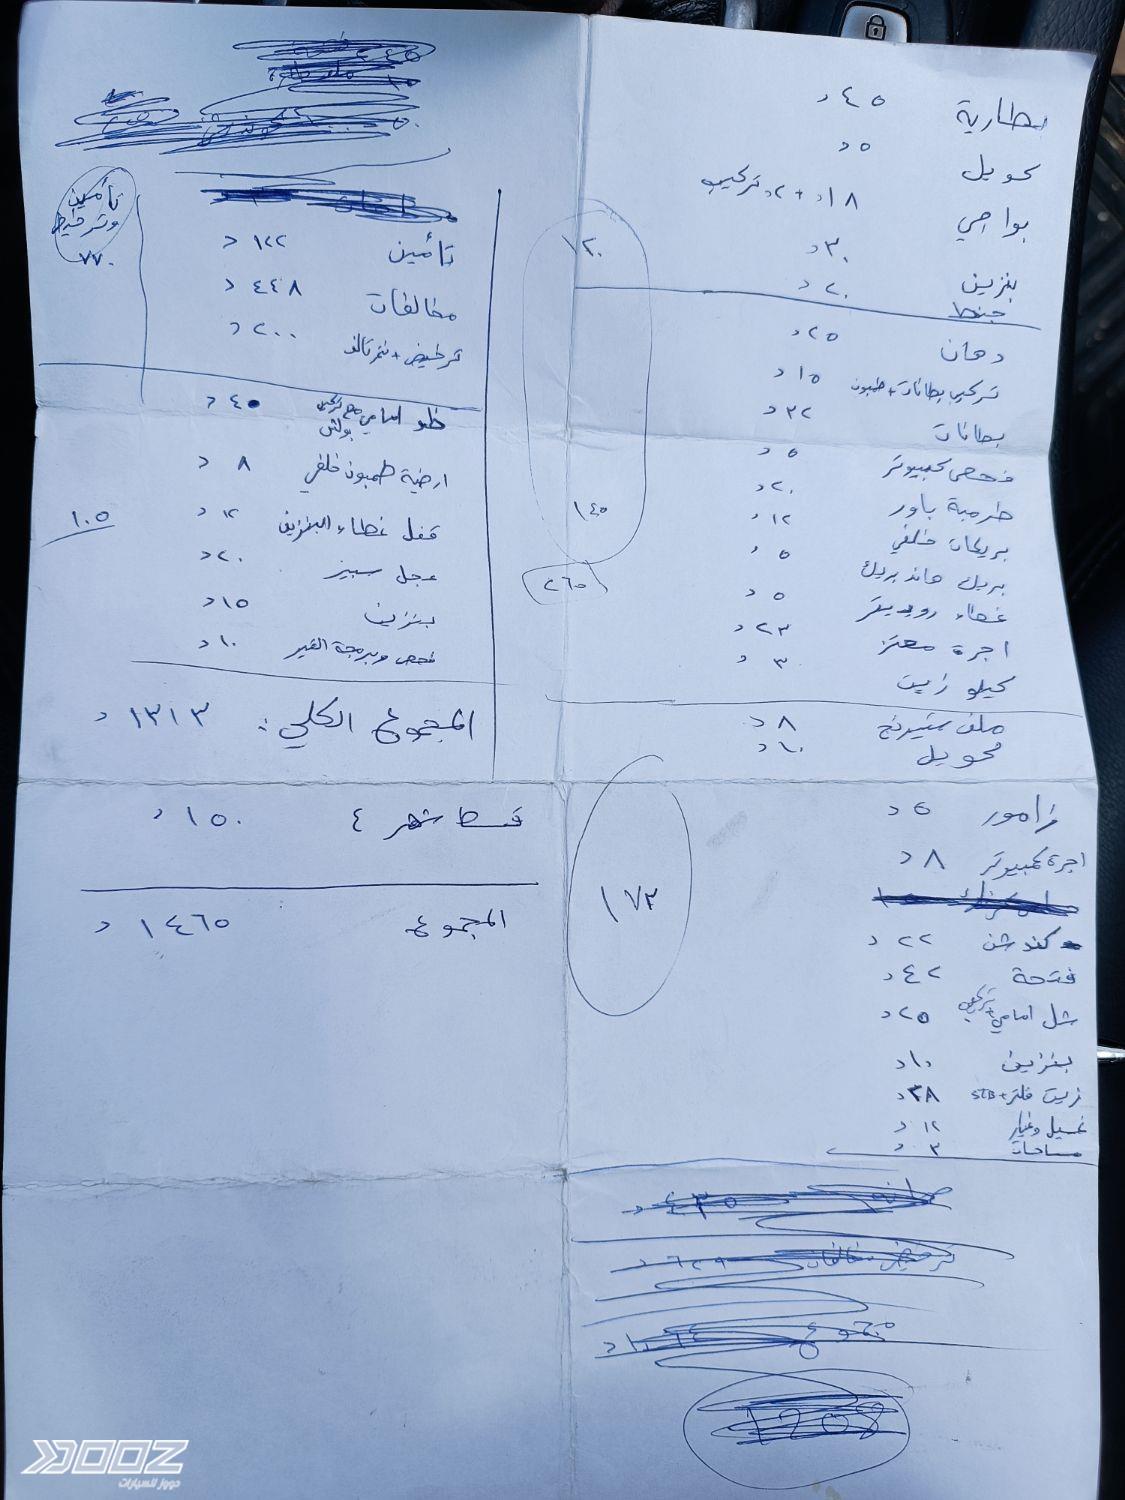 بطارية ٤٥ د
تحويل ٥ د
بواجي ١٨ د + ٢ د تركيب
بنزين ٣٠ د
جنط ٢٠ د
١٢٠
دهان ٢٥ د
تركيب بطانات + طمبون ١٥ د
بطانات ٣٢ د
فحص كمبيوتر ٥ د
طرمبة باور ٢٠ د
بريكات خلفي ١٢ د
بريك هاندبريك ٥ د
غطاء روديتر ٥ د
اجرة معتز ٢٣ د
كيلو زيت ٣ د
١٤٥
٢٦٥
ملف ستيرنج ٨ د
تحويل ١٠ د
زامور ٥ د
اجرة كمبيوتر ٨ د
كندشن ٢٢ د
فتحة ٤٢ د
شل امامي + تركيب ٢٥ د
بنزين ١٠ د
زيت فلتر + STB ٢٨ د
غسيل وغيار ١٢ د
مساحات ٣ د
١٧٣
تأمين
وترخيط
٧٧٠
تأمين ١٢٢ د
مخالفات ٤٤٨ د
ترخيص + ٢٠٠ د
ضو امامي مع تركيب بولش ٤٠ د
ارضية طمبون خلفي ٨ د
قفل غطاء البنزين ١٢ د
عجل سبير ٢٠ د
بنزين ١٥ د
فحص وبرمجة القير ١٠ د
١٠٥
المجموع الكلي: ١٣١٣ د
قسط شهر ٤ ١٥٠ د
المجموع ١٤٦٥ د
DOOZ
دووز للسيارات